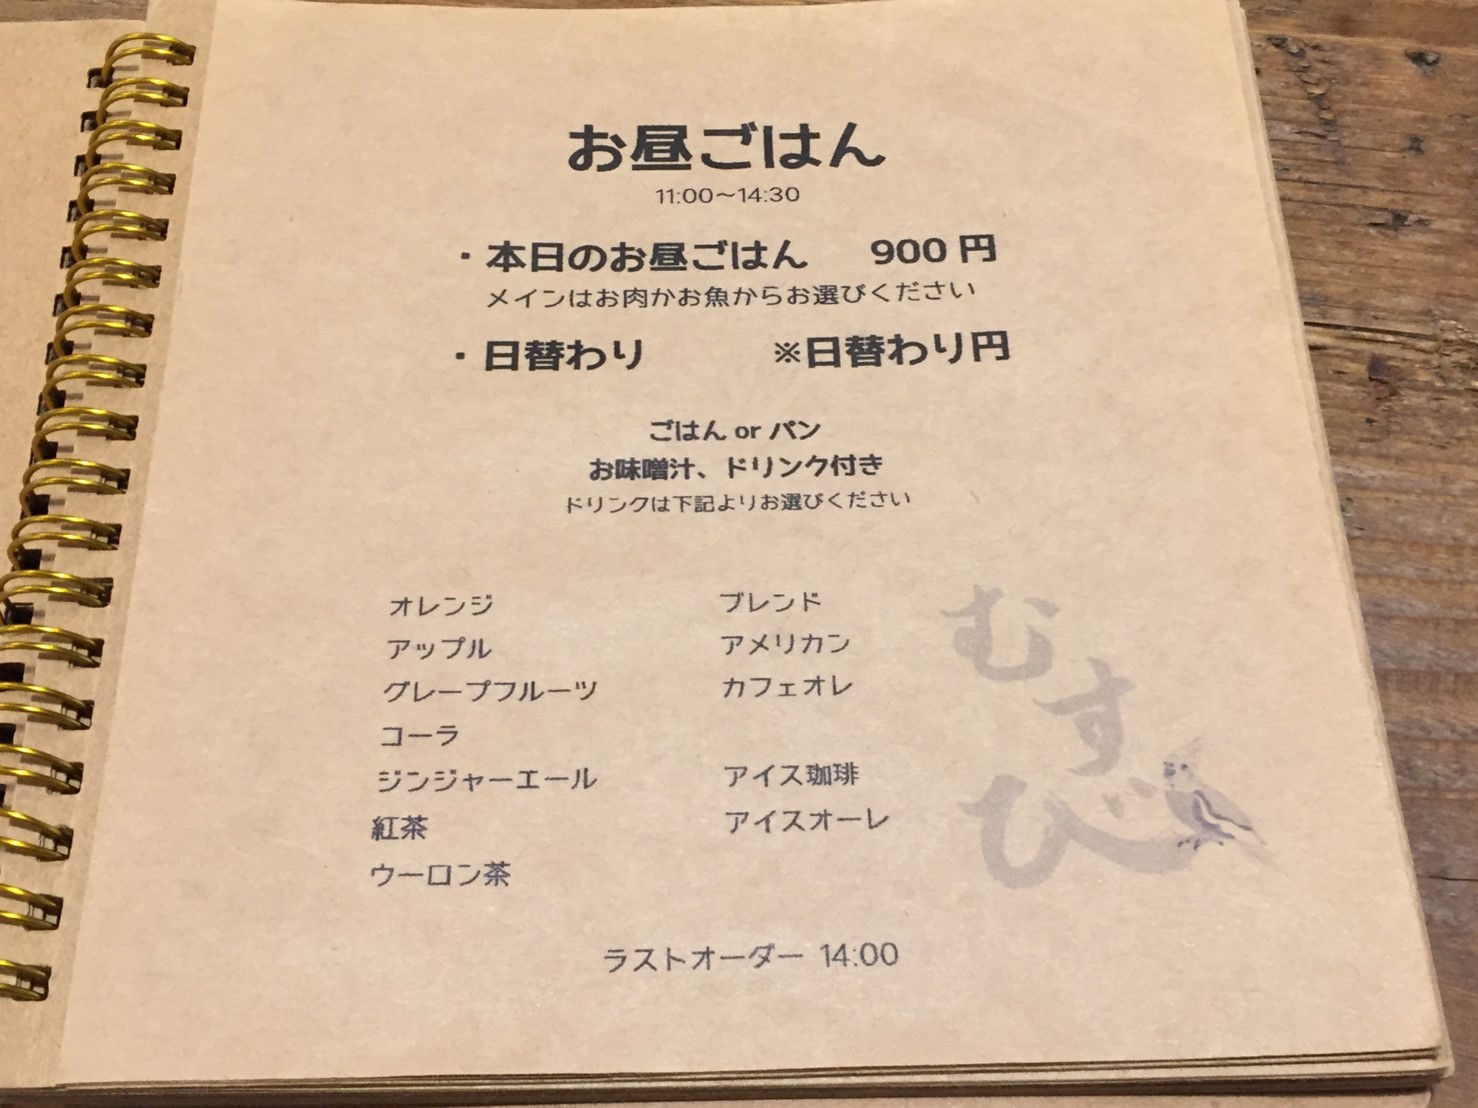 お昼ごはん
11:00～14:30
・本日のお昼ごはん 900 円
メインはお肉かお魚からお選びください
・日替わり ※日替わり円
ごはん or パン
お味噌汁、ドリンク付き
ドリンクは下記よりお選びください
オレンジ
アップル
グレープフルーツ
コーラ
ジンジャーエール
紅茶
ウーロン茶
ブレンド
アメリカン
カフェオレ
アイス珈琲
アイスオーレ
むすび
ラストオーダー 14:00